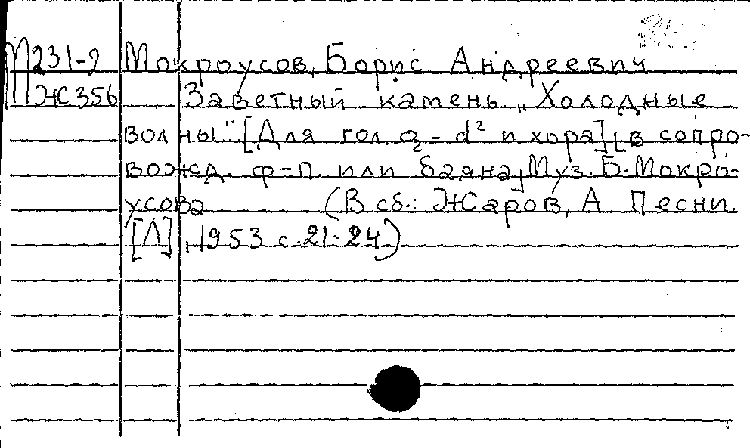 М231-9 Мокроусов, Борис Андреевич
Ж356 Заветный камень „Холодные
волны" [Для гол. a₂ - d² и хора] [в сопро-
вожд. ф-п или баяна] Муз. Б. Мокро-
усова (В сб.: Жаров, А Песни.
[Л], 1953 с. 21-24)